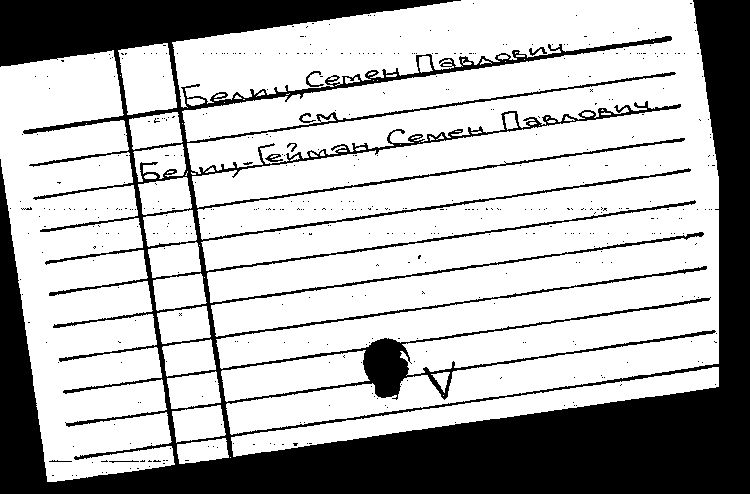 Белиц, Семен Павлович
см.
Белиц-Гейман, Семен Павлович.
V